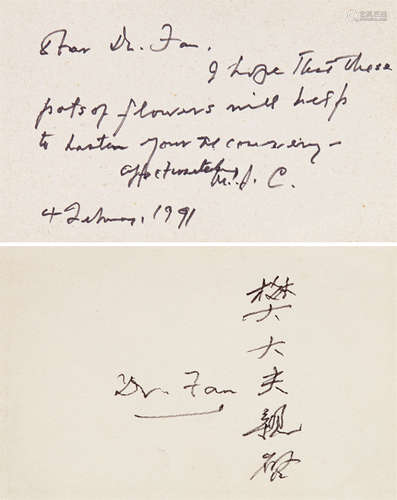 Dear Dr. Fan.
I hope that these
pots of flowers will help
to hasten your recovering –
affectionately
M. J. C.
4 February, 1991
Dr. Fan
樊大夫親啓